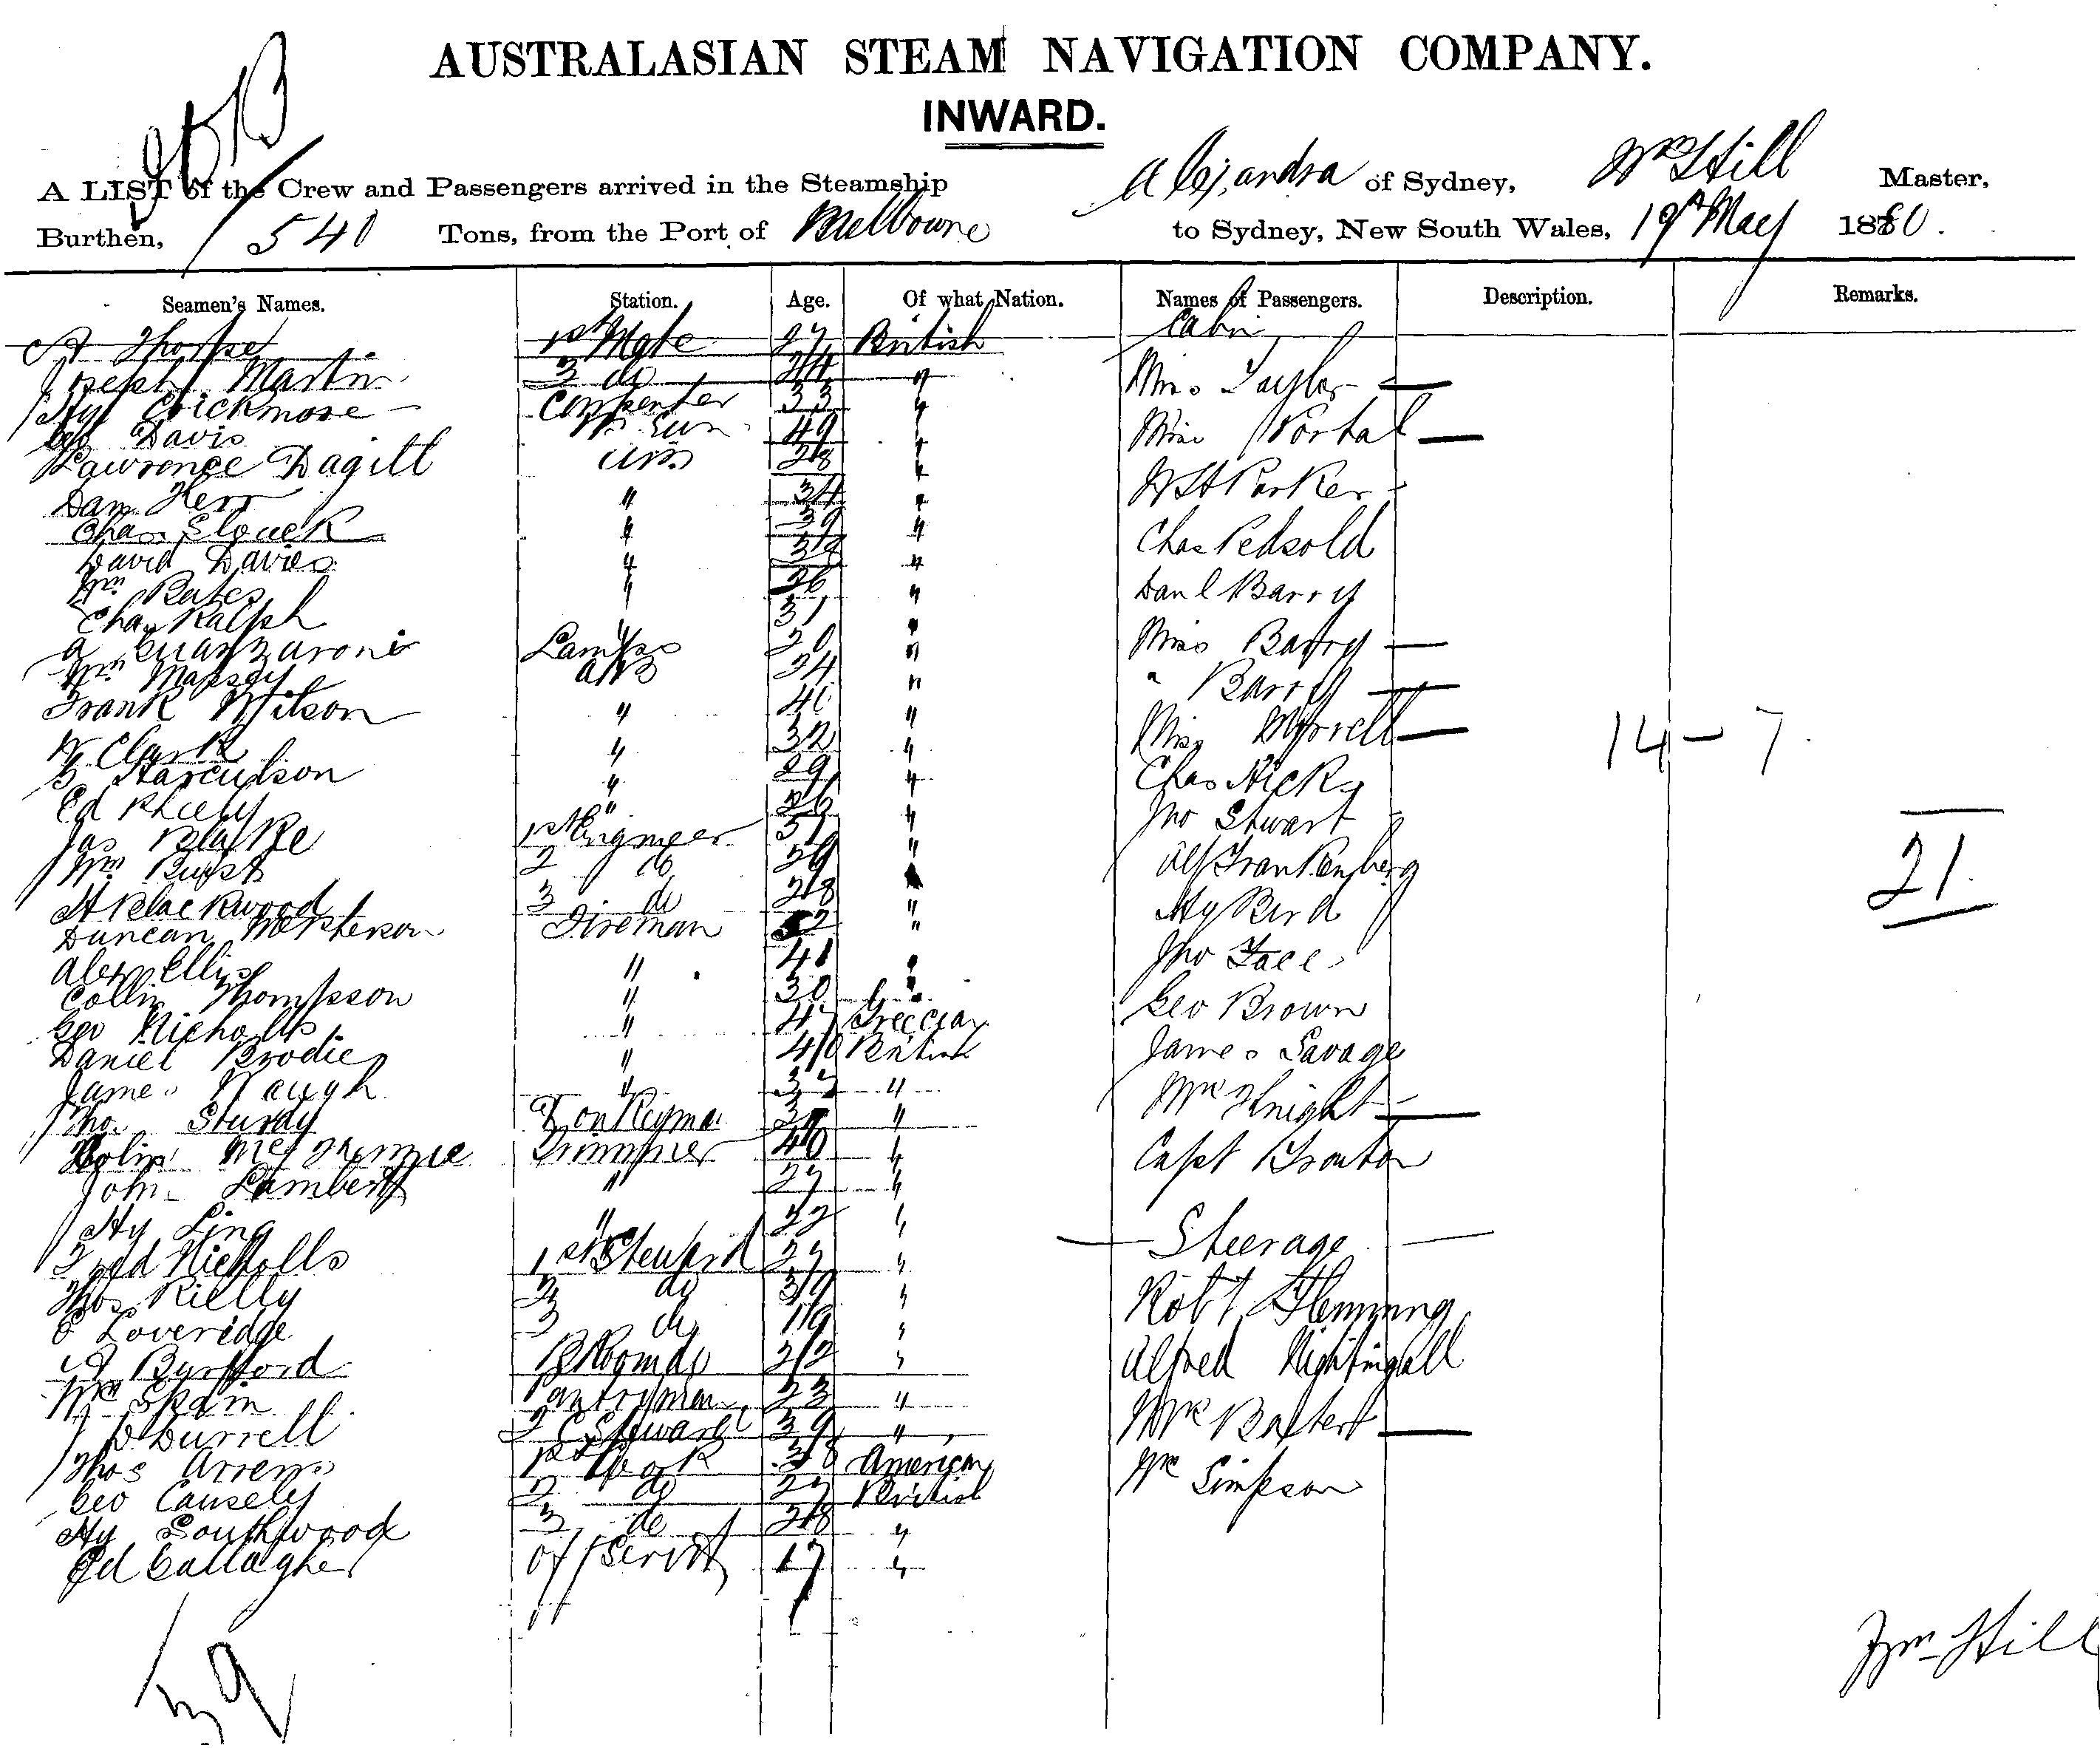 AUSTRALASIAN STEAM NAVIGATION COMPANY.
INWARD.
A LIST of the Crew and Passengers arrived in the Steamship Alexandra of Sydney, Wm Hill Master,
Burthen, 540 Tons, from the Port of Melbourne to Sydney, New South Wales, 19th May 1880.
Seamen's Names. Station. Age. Of what Nation. Names of Passengers. Description. Remarks.
A Thorpe 1st Mate 27 British Cabin
Joseph Martin 2 do 24 " Miss Tayler
Hy Crickmore Carpenter 33 "
Geo Davis 49 " Miss Portal
Lawrence Dagill 28 "
Dan Kerr " 34 " W H Parker
Chas " 39 "
David Davies " " Chas Pedsold
Wm Bates " 26 "
Chas Ralph " 31 " Danl Barry
Lamps 20 " Miss Barry
Wm Massey AB 24 " " Barry
Frank Wilson " 40 " Miss Morrell
W Clark " 32 "
" 29 " Chas Hicks
Ed " 26 " Jno Stuart
Jas Blake 1st Engineer " Alf Frankenberg
Wm 2 do 29 "
H Blackwood 3 do 28 " Hy Bird
Duncan McPherson Fireman "
Alexr Ellis " 41 " Jno
Collin Thompson " 30 "
Geo Nicholls " 47 Greecian Geo Brown
Daniel Brodie " 40 British James Savage
James Waugh " "
Tho. Sturdy Donkeyman " Mrs Knight
Colin McKenzie Trimmer 40 "
John Lambert " 27 " Capt
Hy Ling " 22 "
Fred Nicholls 1st Steward 27 " Steerage
Thos Rielly 2 do 39 "
Loveridge 3 do 19 " Robt Flemming
A Burford Bk Room do 22 " Alfred Nightingall
Wm Spain Pantryman 23 "
D Durrell 2 C Steward 39 " Mrs
Thos Arrens 1st Cook 38 American
Geo Causely 2 do 27 British Mr Simpson
Hy Southwood 3 do 28 "
Ed Gallagher Off Servt 17 "
14 - 7
21.
39
Wm Hill